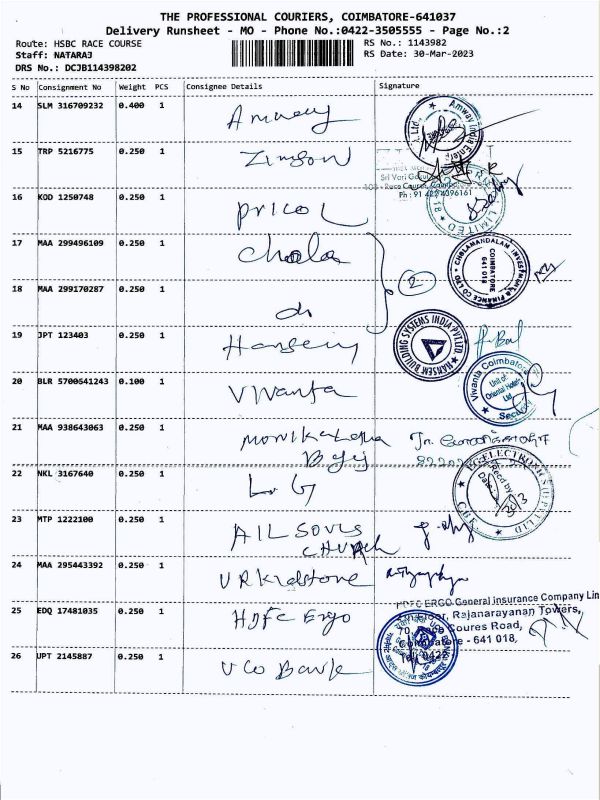 THE PROFESSIONAL COURIERS, COIMBATORE-641037
Delivery Runsheet - MO - Phone No.:0422-3505555 - Page No.:2
Route: HSBC RACE COURSE
RS No.: 1143982
Staff: NATARAJ
RS Date: 30-Mar-2023
DRS No.: DCJB114398202
S No Consignment No Weight PCS Consignee Details Signature
14 SLM 316709232 0.400 1 Amway
Amway India Enter
15 TRP 5216775 0.250 1 Zimson
Sri Vari Gokul
Race Course, Coimbatore
Ph : 91 422 4396161
16 KOD 1250748 0.250 1 Pricol
LIMITED
17 MAA 299496109 0.250 1 Chola
2
CHOLAMANDALAM INVESTMENT & FINANCE CO LTD
COIMBATORE
641 018
18 MAA 299170287 0.250 1 do
19 JPT 123403 0.250 1 Hansen
HANSEN BUILDING SYSTEMS INDIA PVT.LTD.
20 BLR 5700641243 0.100 1 Vivanta
Vivanta Coimbatore
Unit of
Oriental Hotels
Ltd
Security
21 MAA 938643063 0.250 1 Monika
22 NKL 3167640 0.250 1 L.G
LG ELECTRONICS INDIA PVT LTD
Recd by
Date
CBE
23 MTP 1222100 0.250 1 All Souls
Church
24 MAA 295443392 0.250 1
25 EDQ 17481035 0.250 1 HDFC Ergo
HDFC ERGO General insurance Company Lim
Rajanarayanan Towers,
70, Race Coures Road,
Coimbatore - 641 018,
Tel: 0422
26 UPT 2145887 0.250 1 UCO Bank